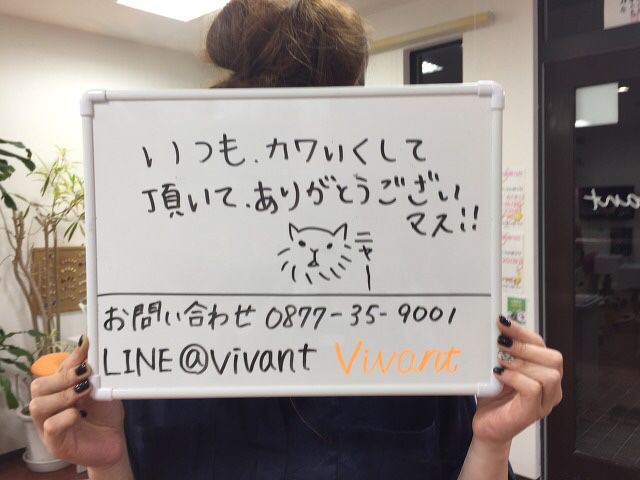 いつも、カワいくして
頂いて、ありがとうござい
マス!!
ニャー
お問い合わせ 0877-35-9001
LINE@vivant Vivant